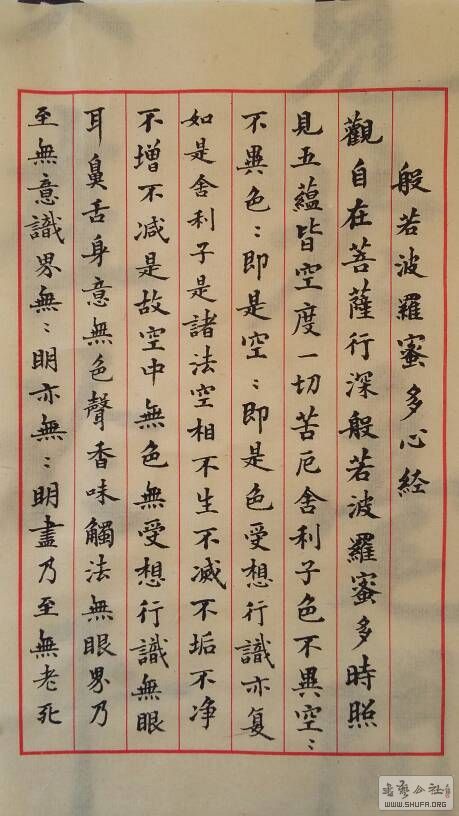 般若波羅蜜多心経
觀自在菩薩行深般若波羅蜜多時照
見五蘊皆空度一切苦厄舍利子色不異空:
不異色:即是空:即是色受想行識亦复
如是舍利子是諸法空相不生不滅不垢不净
不增不减是故空中無色無受想行識無眼
耳鼻舌身意無色聲香味觸法無眼界乃
至無意識界無:明亦無:明盡乃至無老死
公社
WWW.SHUFA.ORG